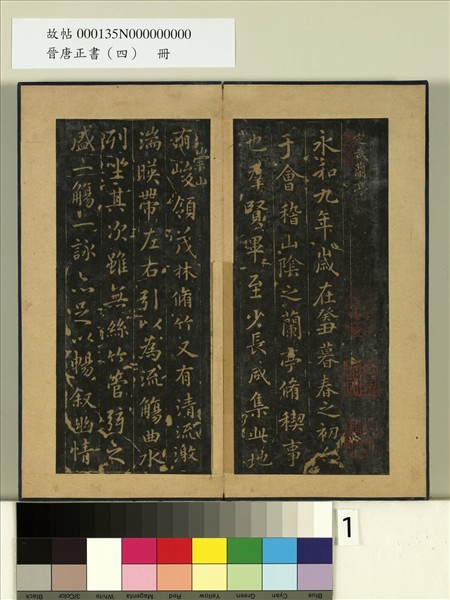 故帖 000135N000000000
晉唐正書（四） 冊
永和九年歲在癸丑暮春之初
于會稽山陰之蘭亭脩稧事
也羣賢畢至少長咸集此地
崇山
有峻領茂林脩竹又有清流激
湍暎帶左右引以為流觴曲水
列坐其次雖無絲竹管弦之
盛一觴一詠亦足以暢叙幽情
1
Blue Cyan Green Yellow Red Magenta White 3/Color Black